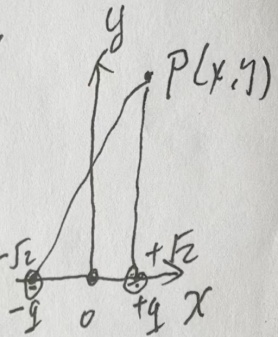 y
P(x,y)
-√2
+√2
-q
0
+q
X